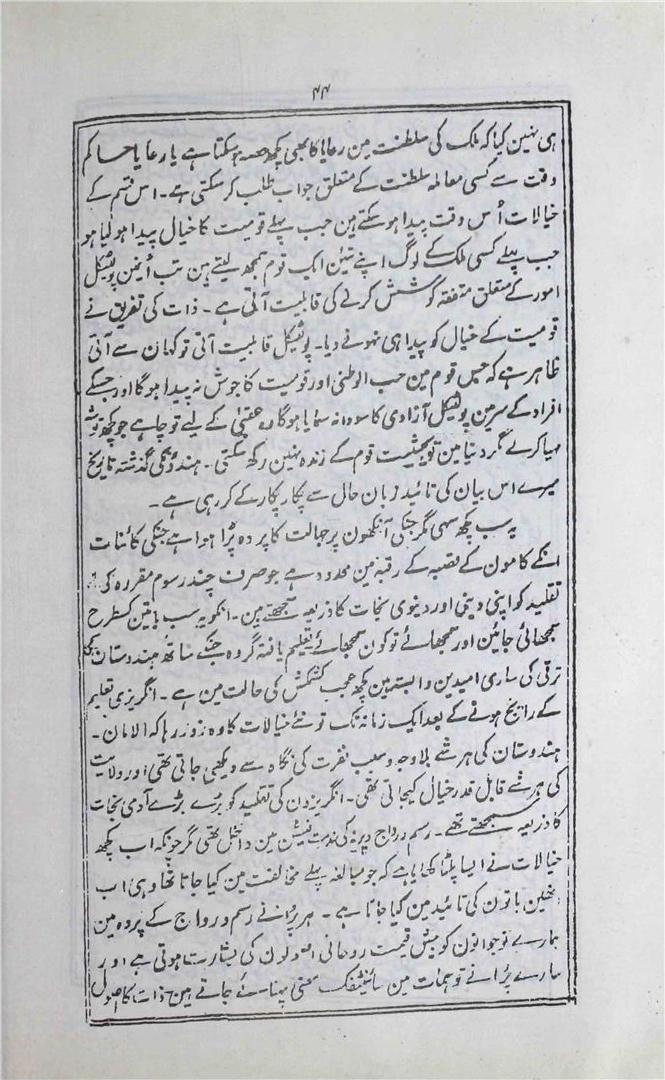 ۴۴
ہی نہین کیا کہ ملک کی سلطنت مین رعایا کا بھی کچھ حصہ ہوسکتا ہے یا رعایا حاکم
وقت سے کسی معاملہ سلطنت کے متعلق جواب طلب کرسکتی ہے۔ اس قسم کے
خیالات اُس وقت پیدا ہوسکتے ہین جب پہلے قومیت کا خیال پیدا ہولیا ہو
جب پہلے کسی ملک کے لوگ اپنے تئین ایک قوم سمجھ لیتے ہین تب اُنمین پولٹیکل
امور کے متعلق متفقہ کوشش کرنے کی قابلیت آتی ہے۔ ذات کی تفریق نے
قومیت کے خیال کو پیدا ہی نہونے دیا۔ پولٹیکل قابلیت آتی تو کہان سے آتی
ظاہر ہے کہ جس قوم مین حب الوطنی اور قومیت کا جوش نہ پیدا ہوگا اور جسکے
افراد کے سر مین پولٹیکل آزادی کا سودا نہ سمایا ہوگا وہ عقبیٰ کے لیے تو چاہے جو کچھ توشہ
مہیا کرلے مگر دنیا مین تو بحیثیت قوم کے زندہ نہین رکھ سکتی۔ ہندؤنکی گذشتہ تاریخ
میرے اس بیان کی تائید زبان حال سے پکار پکار کے کر رہی ہے۔
یہ سب کچھ سہی مگر جنکی آنکھون پر جہالت کا پردہ پڑا ہوا ہے جنکی کائنات
انکے کامون کے قصبہ کے رقبہ مین محدود ہے جو صرف چند رسوم مقررہ کی
تقلید کو اپنی دینی اور دنیوی نجات کا ذریعہ سمجھتے ہین۔ انکو یہ سب باتین کسطرح
سمجھائی جائین اور سمجھائے تو کون سمجھائے تعلیم یافتہ گروہ جنکے ساتھ ہندوستان کی
ترقی کی ساری امیدین وابستہ ہین کچھ عجب کشمکش کی حالت مین ہے۔ انگریزی تعلیم
کے رائج ہونے کے بعد ایک زمانہ تک تو نئے خیالات کا وہ زور رہا کہ الامان۔
ہندوستان کی ہر شے بلاوجہ وسبب نفرت کی نگاہ سے دیکھی جاتی تھی اور ولایت
کی ہر شے قابل قدر خیال کیجاتی تھی۔ انگریزون کی تقلید کو بڑے بڑے آدمی نجات
کا ذریعہ سمجھتے تھے۔ رسم رواج دیرینہ کی مذمت فیشن مین داخل تھی مگر چونکہ اب کچھ
خیالات نے ایسا پلٹا کھایا ہے کہ جو مبالغہ پہلے مخالفت مین کیا جاتا تھا وہی اب
انھین باتون کی تائید مین کیا جاتا ہے۔ ہر پُرانے رسم و رواج کے پردہ مین
ہمارے نوجوانون کو بیش قیمت روحانی اصولون کی بشارت ہوتی ہے اور
ہمارے پُرانے توہمات مین سائنٹفک معنی پہنائے جاتے ہین۔ ذات کا اصول